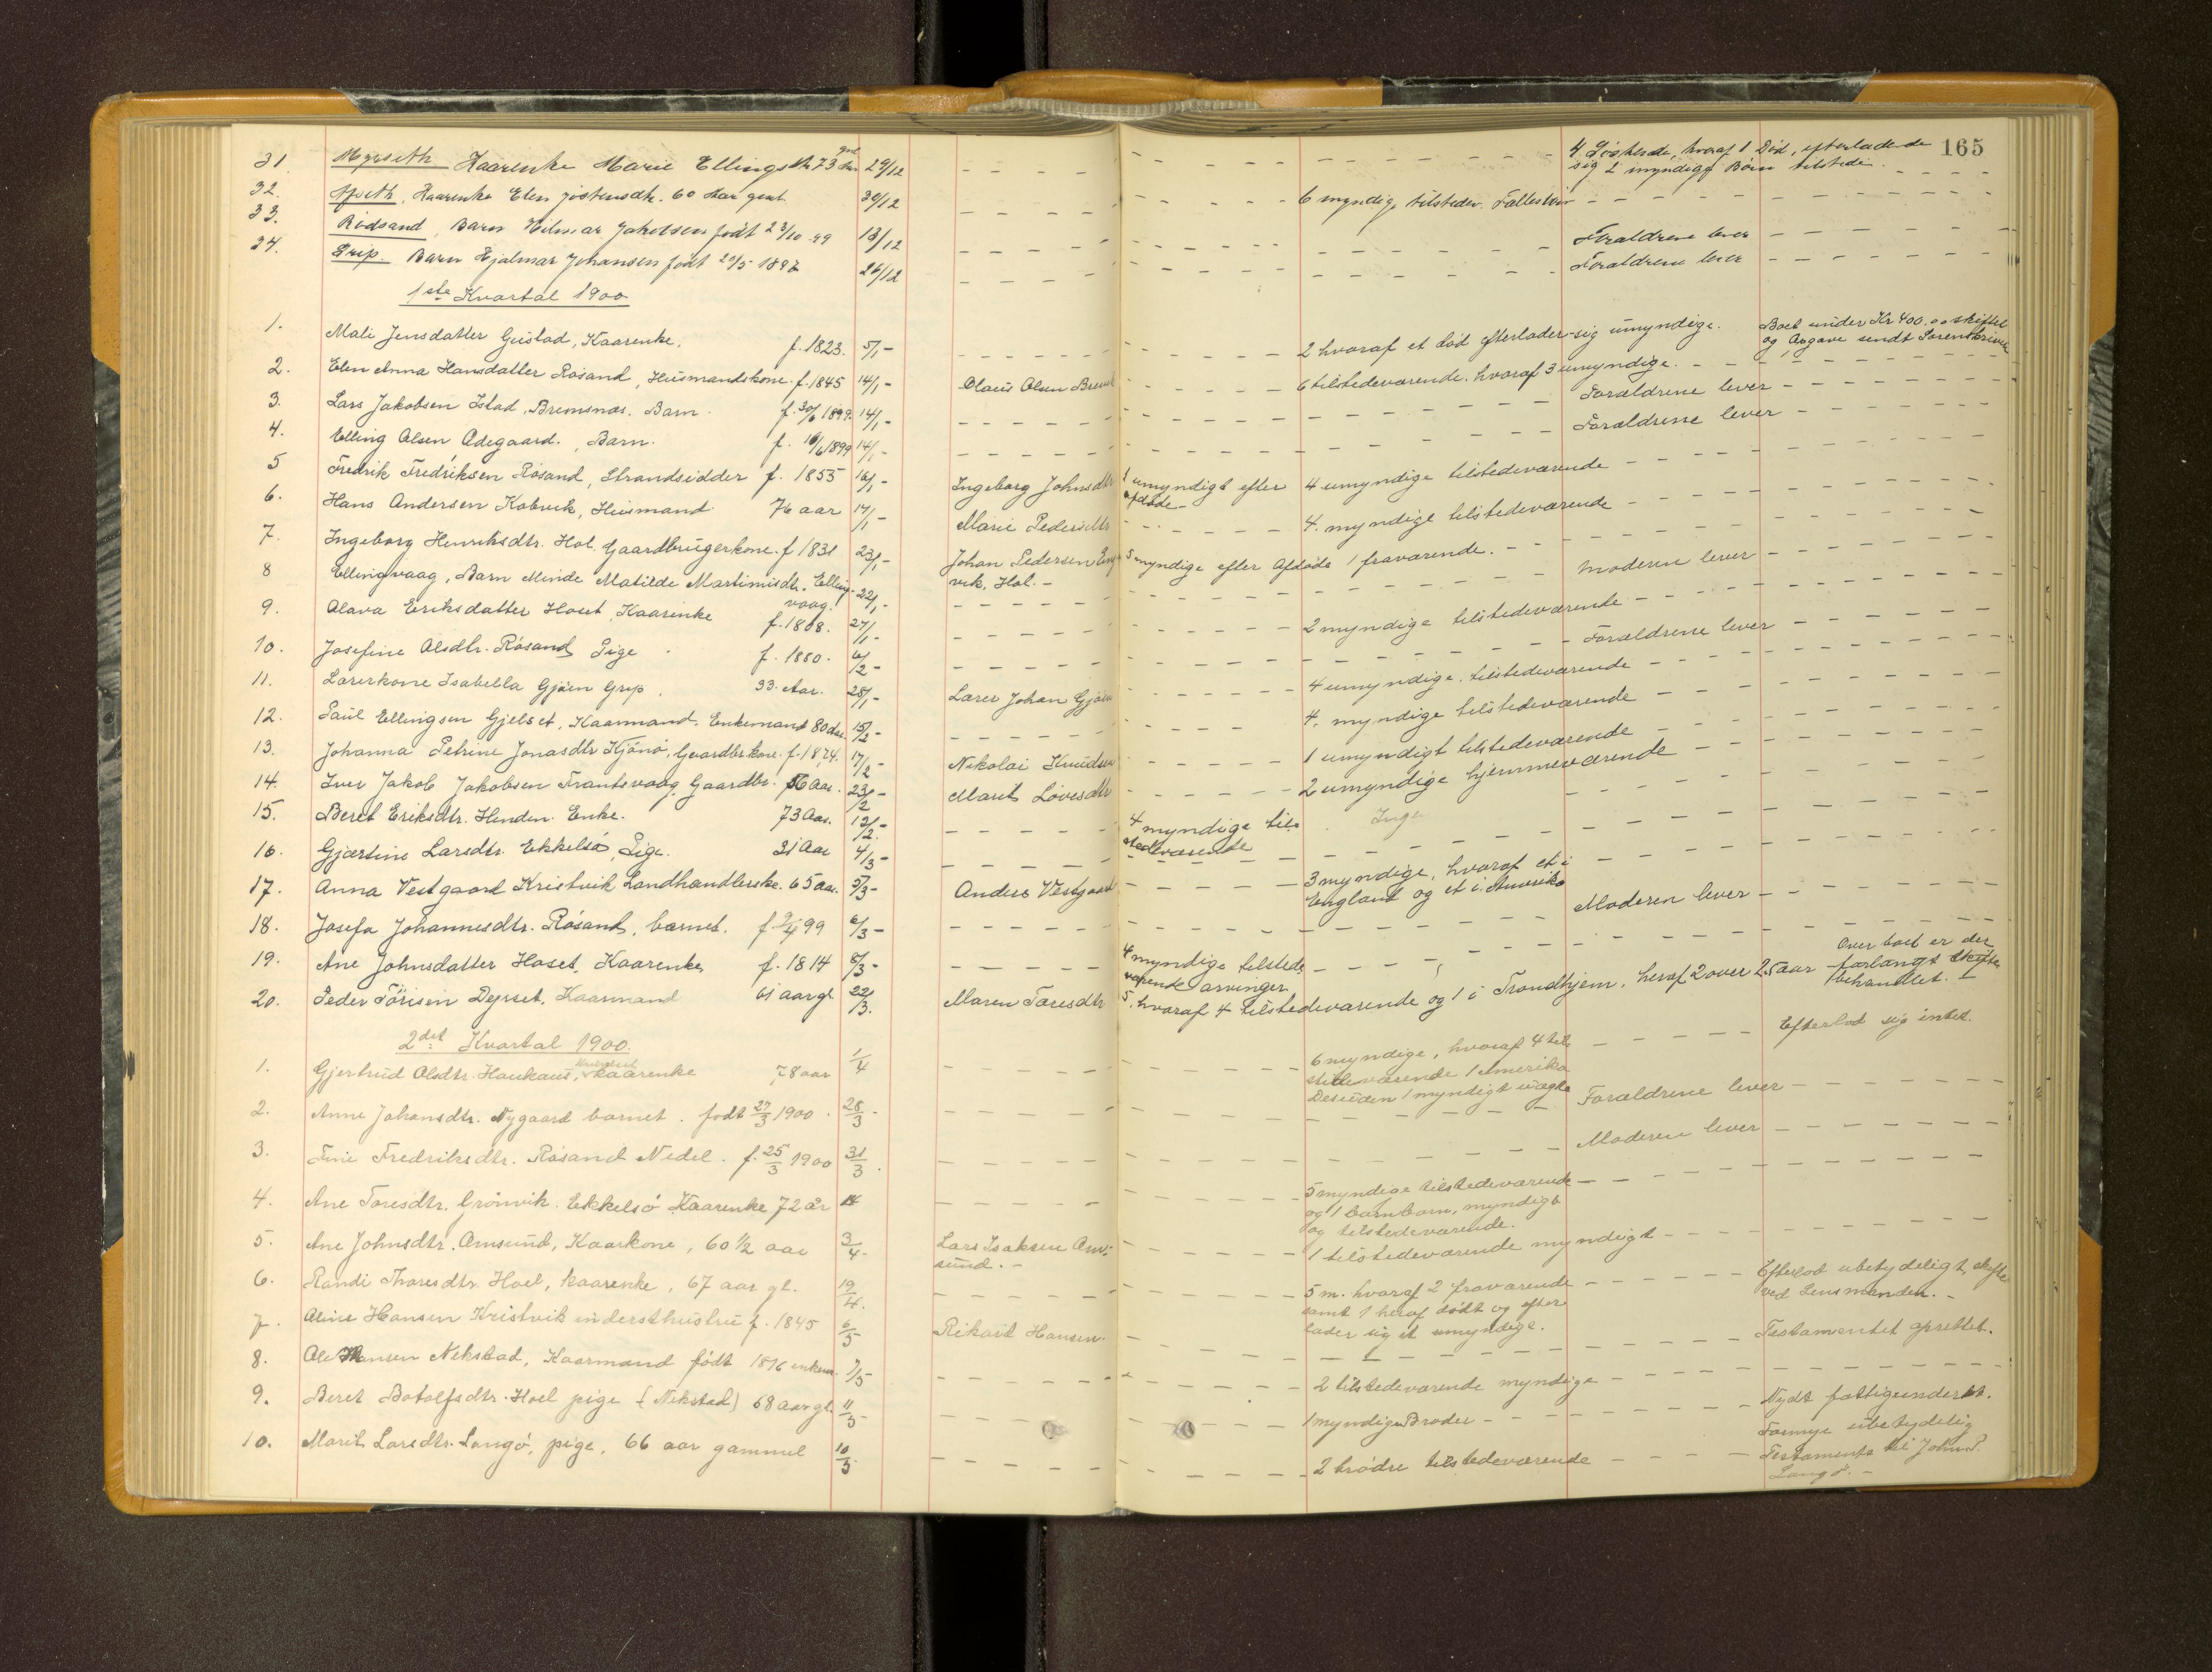 165
31. Myrseth Kaarenke Marie Ellingsdtr 73 Aar 29/12 4 Søskende, hvoraf 1 Død, efterladende
sig 2 myndige Børn tilstede.
32. Kaarenke Elen Jostensdtr. 60 Aar gml. 30/12 6 myndige tilstedev.
33. Rødsand, Barn Hilmar Jakobsen født 23/10 99 13/12 Forældrene lever
34. Grip. Barn Hjalmar Johansen født 20/5 1897 26/12 Forældrene lever
1ste Kvartal 1900
1. Mali Jensdatter Gustad, Kaarenke. f. 1823. 5/1 - 2 hvoraf et død efterlader sig umyndige. Boet under Kr 400.00 skiftet
og Opgave sendt Sorenskriver
2. Elen Anna Hansdatter Rosand, Husmandskone. f. 1845 14/1 - Olaus Olsen 6 tilstedeværende. hvoraf 3 umyndige.
3. Lars Jakobsen Istad, Bremsnæs. Barn. f. 30/6 1899. 14/1 - Forældrene lever
4. Elling Olsen Ødegaard. Barn. f. 16/6 1899 14/1 - Forældrene lever
5 Fredrik Fredriksen Rosand, Strandsidder f. 1855 16/1 - Ingeborg Johnsdtr 1 umyndigt efter 4 umyndige tilstedeværende
afdøde -
6. Hans Andersen Kobvik, Husmand 76 aar 17/1 - Marie Pedersdtr 4. myndige tilstedeværende
7. Ingeborg Henriksdtr. Hol. Gaardbrugerkone. f 1831 23/1 - Johan Pedersen Eng 5 myndige efter Afdøde 1 fraværende.
vik, Hol. -
8 Ellingvaag, Barn Minde Matilde Martinusdtr. Elling- 22/1 - Moderen lever
vaag.
9. Olava Eriksdatter Hoset, Kaarenke f. 1808. 27/1 - 2 myndige tilstedeværende
10. Josefine Olsdtr. Rosand Pige f. 1880. 6/2 - Forældrene lever
11. Lærerkone Isabella Gjøen Grip. 33. Aar. 28/1 - Lærer Johan Gjøen 4 umyndige. tilstedeværende
12. Paul Ellingsen Gjelset, Kaarmand. Enkemand 80 Aar. 15/2 - 4. myndige tilstedeværende
13. Johanna Petrine Jonasdtr Kjønø, Gaardbr.kone. f. 1874. 17/2 - Nikolai Knudsen 1 umyndigt tilstedeværende
14. Iver Jakob Jakobsen Frantsvaag Gaardbr. 56 Aar. 23/2 - Marit Lovesdtr 2 umyndige hjemmeværende
15. Beret Eriksdtr. Henden. Enke. 73 Aar. 12/2 - 4 myndige til-
stedeværende
16. Gjertine Larsdtr. Ekkelsø, Pige. 31 Aar 4/3 - Inge
17. Anna Vestgaard Kristvik Landhandlerske. 65 aar. 5/3 - Anders Vestgaard 3 myndige, hvoraf et i
England og et i Amerika
18. Josefa Johannesdtr. Rosand, barnet. f. 9/4 99 6/3 - Moderen lever
19. Ane Johnsdatter Hoset, Kaarenke f. 1814 8/3 - 4 myndige tilstede
værende arvinger Over boet er der
forlangt skifte
behandlet.
20. Peder Törisen Dyrset, Kaarmand 61 aar gl. 22/3. Maren Toresdtr 5. hvoraf 4 tilstedeværende og 1 i Trondhjem, heraf 2 over 25 aar
2det Kvartal 1900.
1. Gjertrud Olsdtr. Haukaus, kaarenke 78 aar 1/4 6 myndige, hvoraf 4 til- Efterlod sig intet.
stedeværende 1 Amerika
Desuden 1 myndigt uægte
2. Anne Johansdtr. Nygaard barnet. født 27/3 1900. 28/3 - Forældrene lever
3. Fredriksdtr. Rosand Nedel. f. 25/3 1900 31/3. Moderen lever
4. Ane Toresdtr. Grönvik. Ekkelsö Kaarenke 72 år 5 myndige tilstedeværende
og 1 barnbarn, myndigt
og tilstedeværende.
5. Ane Johnsdtr. Omsund, Kaarkone, 60 1/2 aar 3/4 - Lars Isaksen Om- 1 tilstedeværende myndigt
sund. -
6. Randi Thoresdtr. Hoel, kaarenke, 67 aar gl. 19/4. 5 m. hvoraf 2 fraværende Efterlod ubetydeligt, skifte
samt 1 heraf dødt og efter ved Lensmanden. -
lader sig et umyndige.
7. Oline Hansen Kristvik indersthustru f. 1845 6/5 Rikard Hansen. Testamentet oprettet.
8. Ole Hansen Nekstad, Kaarmand født 1816 enkem. 7/5 2 tilstedeværende myndige
9. Beret Botolfsdtr. Hoel pige (Nekstad) 68 aar gl. 11/5 - 1 myndig Broder Nydt fattigunderst.
10. Marit Larsdtr. Langö, pige, 66 aar gammel 10/5 2 brödre tilstedeværende Formue ubetydelig
Testamente til John P.
Langö. -